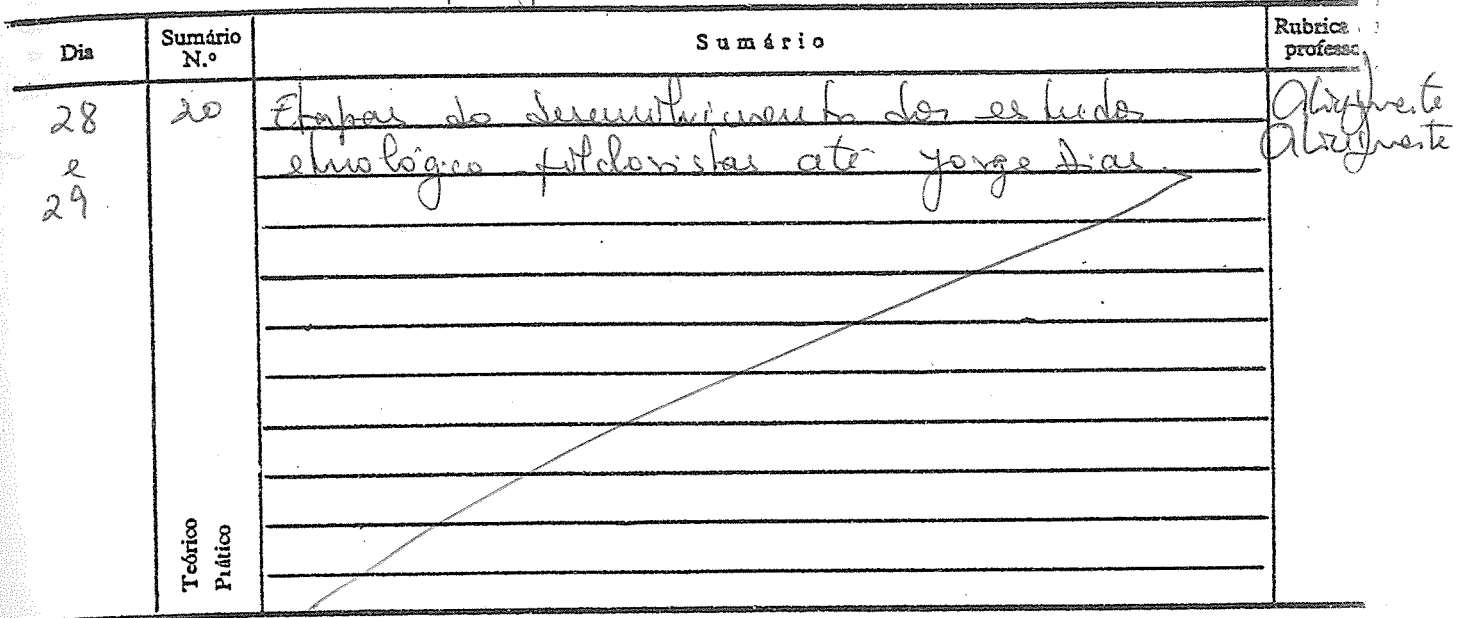 Dia
Sumário N.º
Sumário
Rubrica professo
28
e
29
20
Etapas do desenvolvimento dos estudos
etnológico folcloristas até Jorge Dias.
Teórico
Prático